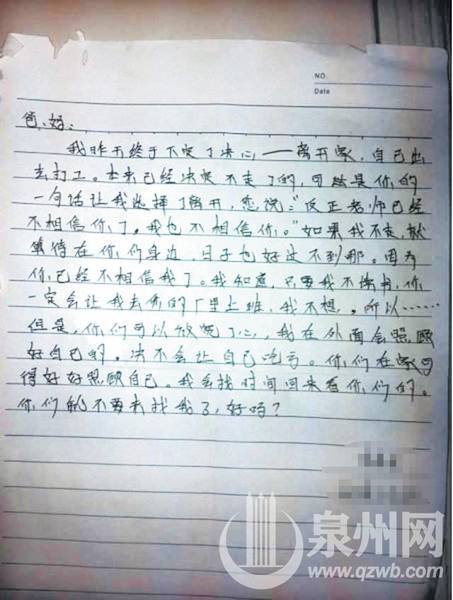 NO.
Date
爸、妈：
我昨天终于下定了决心——离开家，自己出
去打工。本来已经决定不走了的，可就是你的
一句话让我选择了离开，您说："反正老师已经
不相信你了。我也不相信你。"如果我不走，就
算待在你们身边，日子也好过不到那。因为
你已经不相信我了。我知道，只要我不读书，你
一定会让我去你的厂里上班，我不想。所以……
但是，你们可以放宽了心，我在外面会照顾
好自己的。决不会让自己吃亏。你们在家可
得好好照顾自己。我会找时间回来看你们的。
你们就不要来找我了，好吗？
泉州网
www.qzwb.com